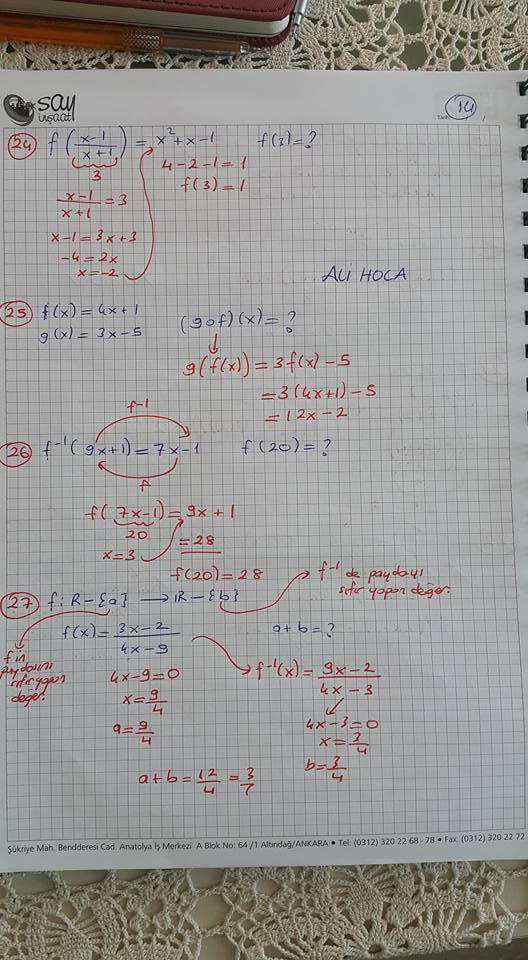 say
inşaat
14
24 f((x-1)/(x+1)) = x²+x-1 f(3)=?
3
4-2-1=1
f(3)=1
(x-1)/(x+1)=3
x-1=3x+3
-4=2x
x=-2
ALİ HOCA
25 f(x)=4x+1
g(x)=3x-5 (gof)(x)=?
g(f(x))=3f(x)-5
=3(4x+1)-5
=12x-2
f⁻¹
26 f⁻¹(9x+1)=7x-1 f(20)=?
f
f(7x-1)=9x+1
20
x=3 =28
f(20)=28
27 f:R-{a}→R-{b}
f⁻¹ de paydayı
sıfır yapan değer.
f(x)=(3x-2)/(4x-9) a+b=?
f in
paydasını
sıfır yapan
değer.
4x-9=0
x=9/4
a=9/4
f⁻¹(x)=(9x-2)/(4x-3)
4x-3=0
x=3/4
b=3/4
a+b=12/4=3/1
Şükriye Mah. Bendderesi Cad. Anatolya İş Merkezi A Blok No: 64 /1 Altındağ/ANKARA • Tel: (0312) 320 22 68 - 78 • Fax: (0312) 320 72